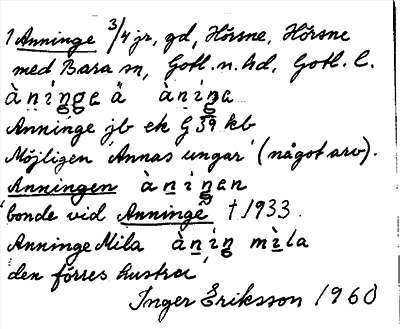 1 Anninge 3/4 jr, gd, Hörsne, Hörsne
med Bara sn, Gotl. n. hd, Gotl. l.
àninga ä ànina
Anninge jb ek G 39 kb
Möjligen Annas ungar (något arv).
Anningen àningen
bonde vid Anninge † 1933.
Anninge Mila àning mìla
den förres hustru
Inger Eriksson 1960